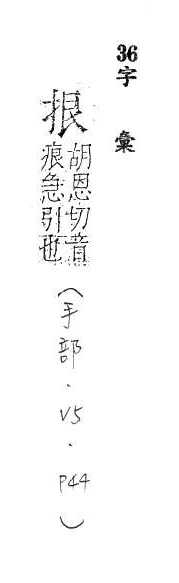 36字彙
拫
胡恩切音
痕急引也
(手部.V5.P44)